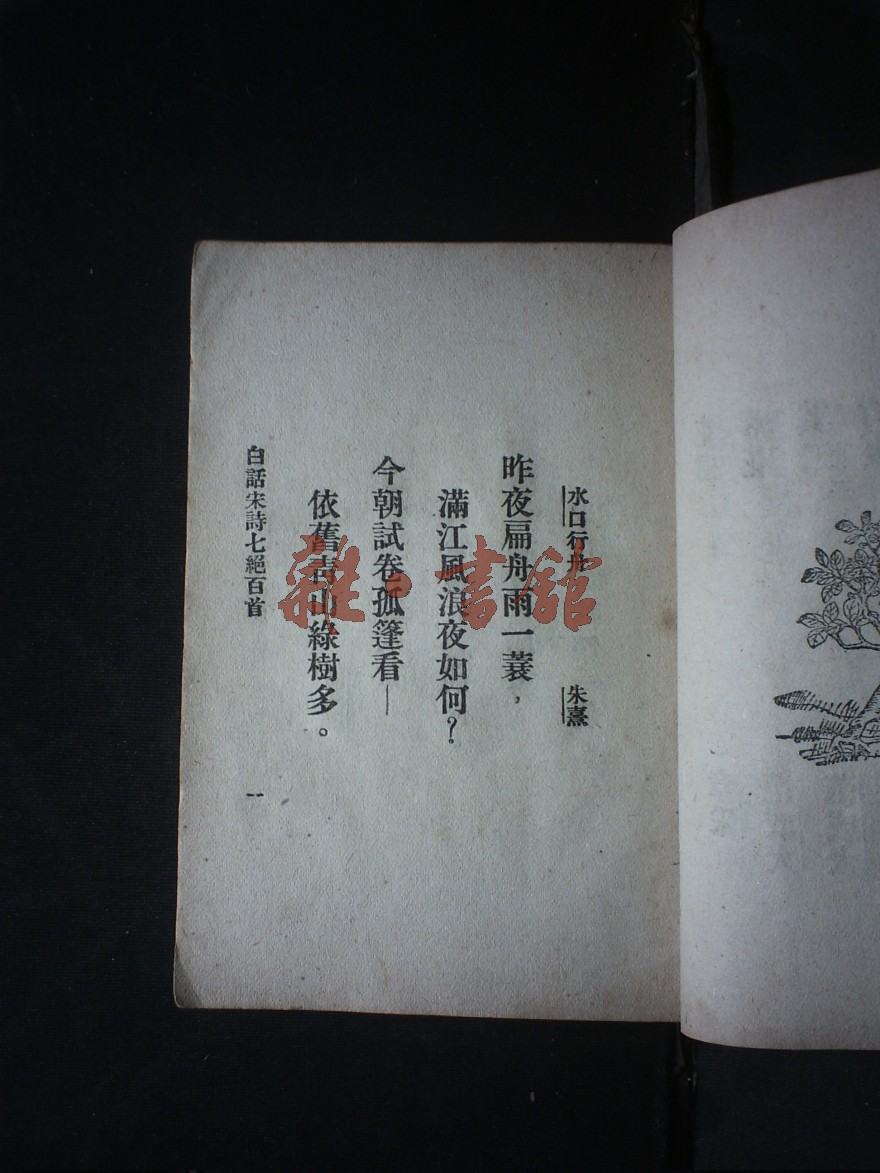 水口行舟 朱熹
昨夜扁舟雨一蓑，
滿江風浪夜如何？
今朝試卷孤篷看—
依舊青山綠樹多。
白話宋詩七絕百首 一
雜·書館